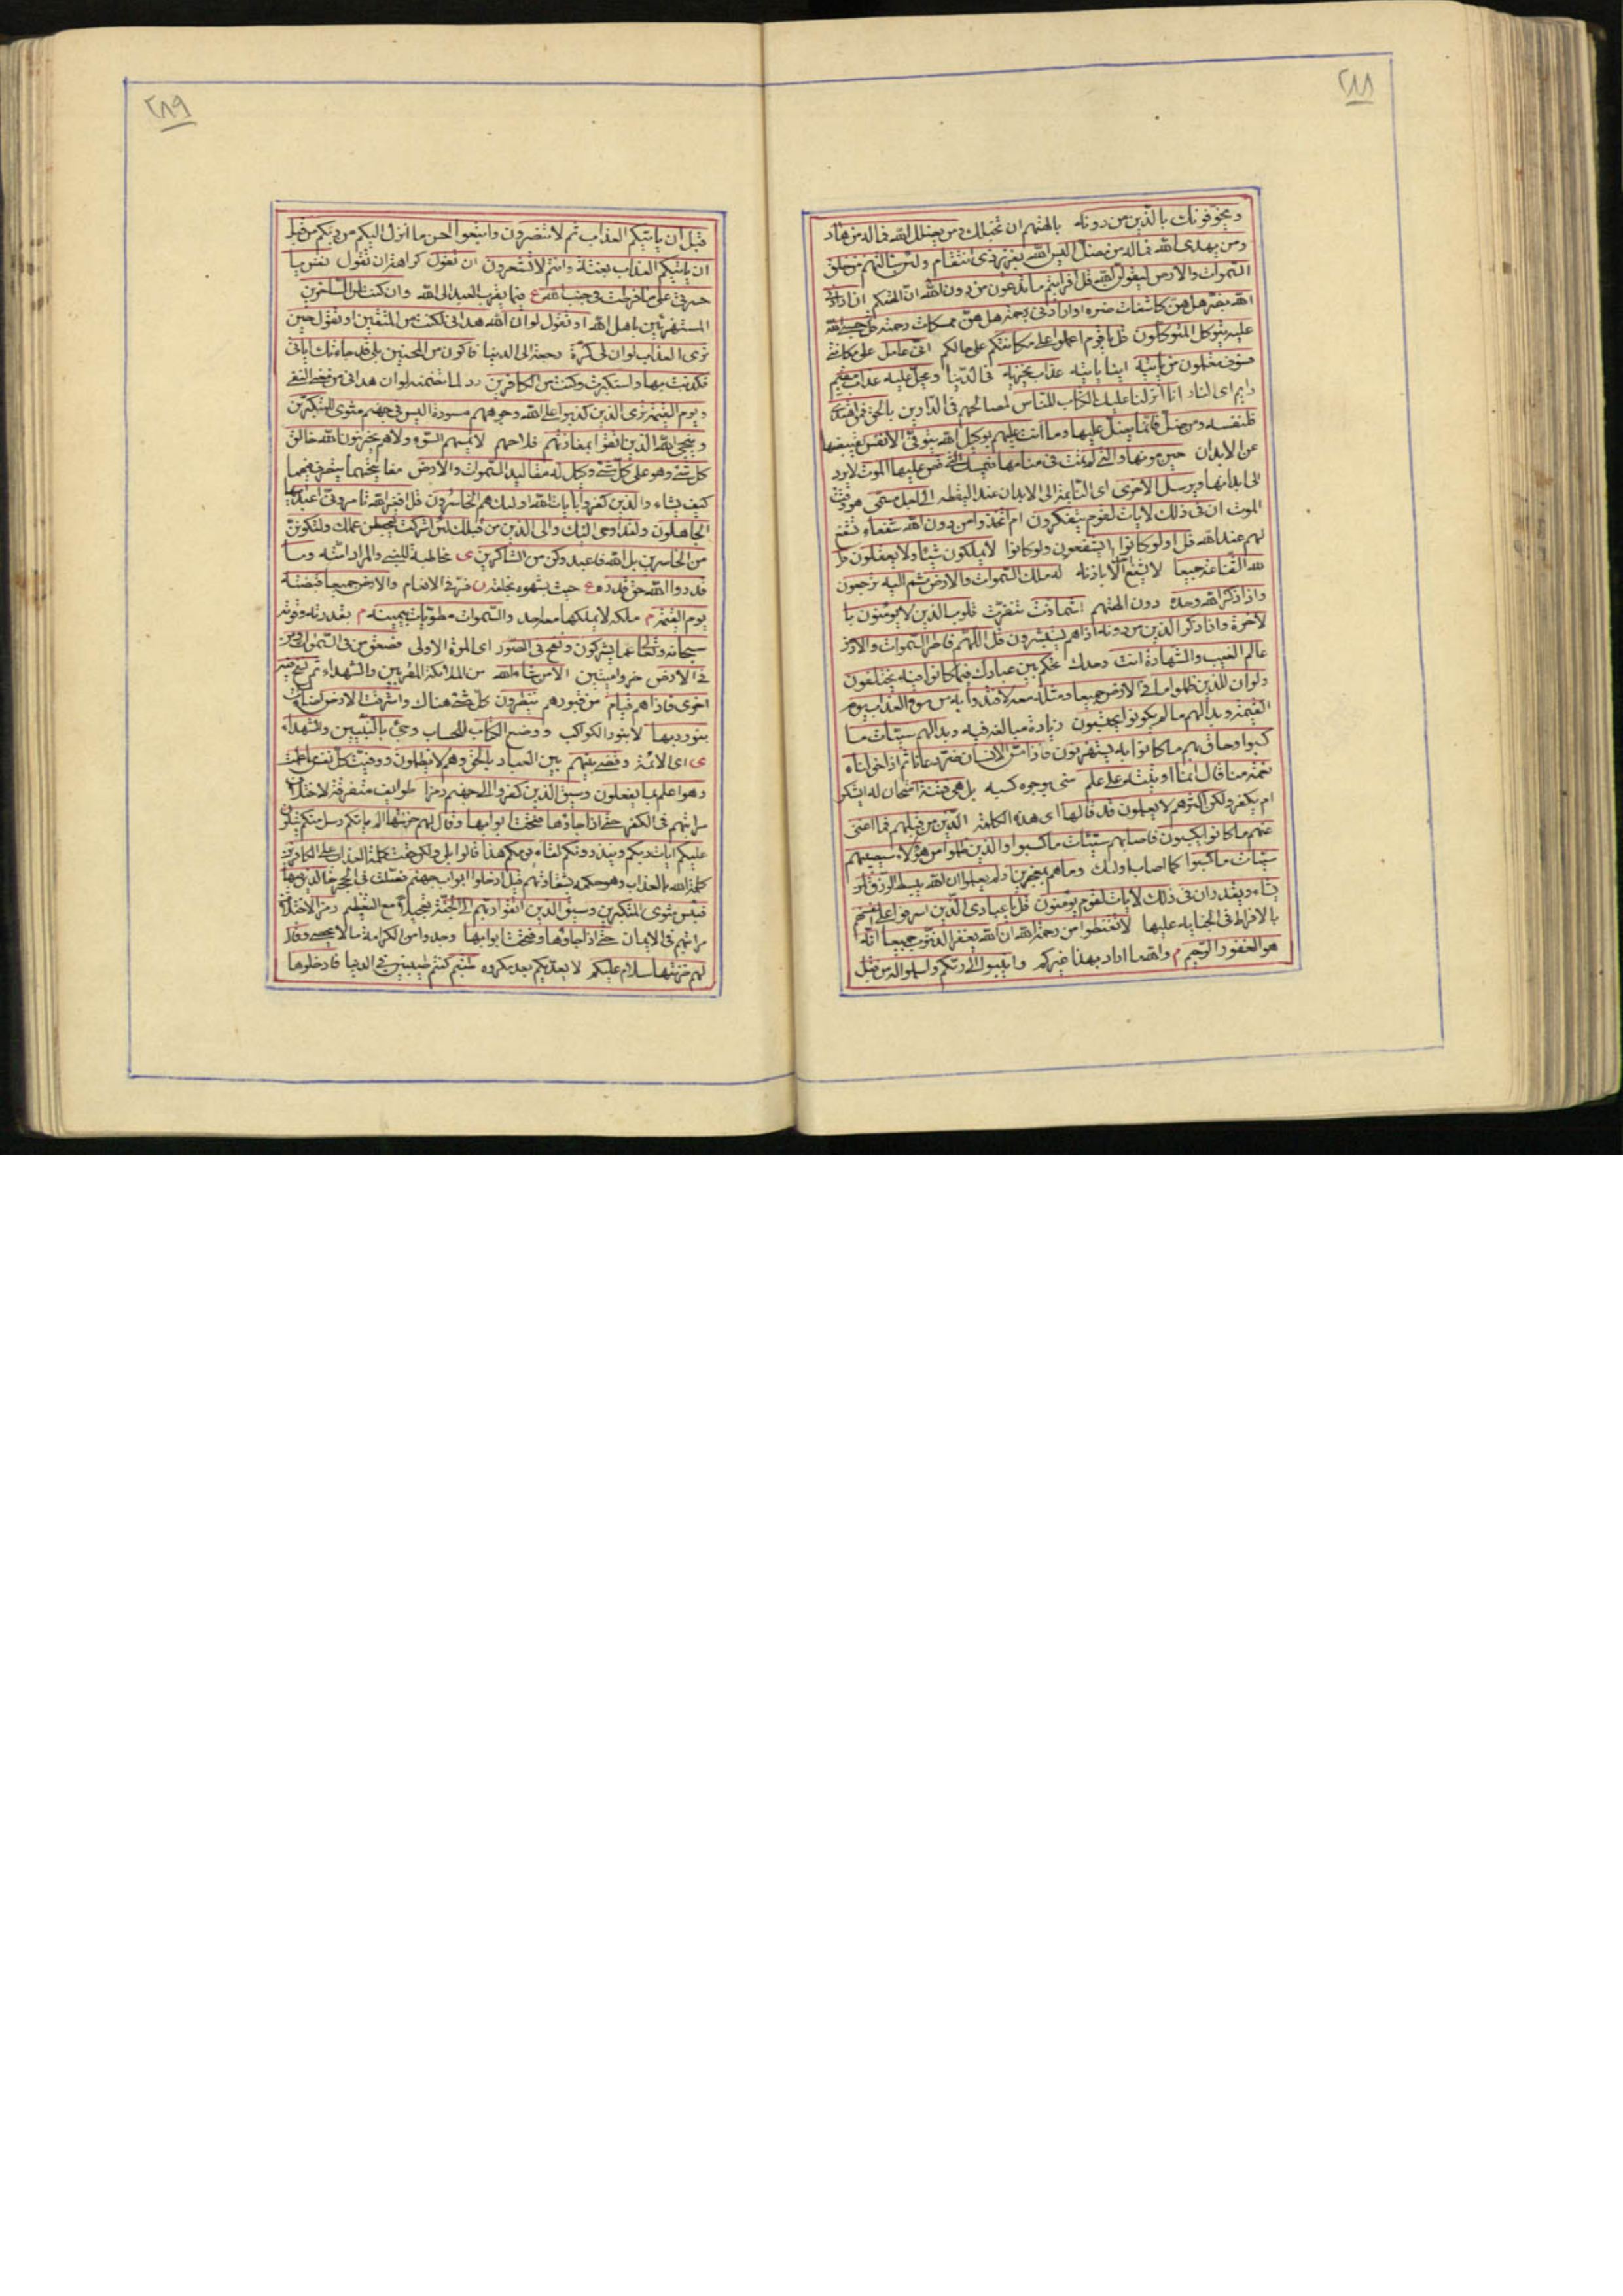 ٢٨٨
ويخوفونك بالذين من دونه بالهتهم ان تخبلك ومن يضلل الله فماله من هاد
ومن يهدى الله فماله من مضل اليس الله بعزيز ذى انتقام ولئن سالتهم من خلق
السموات والارض ليقولن الله قل افرايتم ما تدعون من دون الله ان الهتكم ان ارادنى
الله بضر هل هن كاشفات ضره او ارادنى برحمة هل هن ممسكات رحمته قل حسبى الله
عليه يتوكل المتوكلون قل يا قوم اعملوا على مكانتكم على حالكم انى عامل على مكانتى
فسوف تعلمون من ياتيه اينا ياتيه عذاب يخزيه فى الدنيا ويحل عليه عذاب مقيم
دايم اى النار انا انزلنا عليك الكتاب للناس لمصالحهم فى الدارين بالحق فمن اهتدى
فلنفسه ومن ضل فانما يضل عليها وما انت عليهم بوكيل الله يتوفى الانفس يقبضها
عن الابدان حين موتها والتى لم تمت فى منامها فيمسك التى قضى عليها الموت لا يرد
الى ابدانها ويرسل الاخرى اى النايمة الى الابدان عند اليقظه الى اجل مسمى هو وقت
الموت ان فى ذلك لايات لقوم يتفكرون ام اتخذوا من دون الله شفعاء تشفع
لهم عند الله قل اولو كانوا ايشفعون ولو كانوا لا يملكون شيئا ولا يعقلون قل
لله الشفاعة جميعا لا يشفع الا باذنه له ملك السموات والارض ثم اليه ترجعون
واذا ذكر الله وحده دون الهتهم اشمازت نفرت قلوب الذين لا يومنون با
لاخرة واذا ذكر الذين من دونه اذا هم يستبشرون قل اللهم فاطر السموات والارض
عالم الغيب والشهادة انت وحدك تحكم بين عبادك فيما كانوا فيه يختلفون
ولو ان للذين ظلموا ما فى الارض جميعا ومثله معه لافتدوا به من سوء العذاب يوم
القيمة وبدا لهم ما لم يكونوا يحتسبون زيادة مبالغه فيه وبدا لهم سيئات ما
كسبوا وحاق بهم ما كانوا به يستهزون فاذا مس الانسان ضر دعانا ثم اذا خولناه
نعمة منا قال انما اوتيته على علم منى بوجوه كسبه بل هى فتنة امتحان له ايشكر
ام يكفر ولكن اكثرهم لا يعلمون قد قالها اى هذه الكلمة الذين من قبلهم فما اغنى
عنهم ما كانوا يكسبون فاصابهم سيئات ما كسبوا والذين ظلموا من هؤلاء سيصيبهم
سيئات ما كسبوا كما اصاب اولئك وما هم بمعجزين اولم يعلموا ان الله يبسط الرزق لمن
يشاء ويقدر ان فى ذلك لايات لقوم يومنون قل يا عبادى الذين اسرفوا على انفسهم
بالافراط فى الجنايه عليها لا تقنطوا من رحمة الله ان الله يغفر الذنوب جميعا انه
هو الغفور الرحيم م والله ما اراد بهذا غيركم وانيبوا الى ربكم واسلموا له من قبل
٢٨٩
قبل ان ياتيكم العذاب ثم لا تنصرون واتبعوا احسن ما انزل اليكم من ربكم من قبل
ان ياتيكم العذاب بغتة وانتم لا تشعرون ان تقول كراهة ان تقول نفس يا
حسرتى على ما فرطت فى جنب الله ع فيما يقرب العبد الى الله وان كنت لمن الساخرين
المستهزئين باهل الله او تقول لو ان الله هدانى لكنت من المتقين او تقول حين
ترى العذاب لو ان لى كرة رجعة الى الدنيا فاكون من المحسنين بلى قد جاءتك اياتى
فكذبت بها واستكبرت وكنت من الكافرين رد لما تضمنه لو ان هدانى من معنى النفى
ويوم القيمة ترى الذين كذبوا على الله وجوههم مسودة اليس فى جهنم مثوى للمتكبرين
وينجى الله الذين اتقوا بمفازتهم فلاحهم لا يمسهم السوء ولا هم يحزنون الله خالق
كل شئ وهو على كل شئ وكيل له مقاليد السموات والارض مفاتيحهما يتصرف فيهما
كيف يشاء والذين كفروا بايات الله اولئك هم الخاسرون قل افغير الله تامرونى اعبد ايها
الجاهلون ولقد اوحى اليك والى الذين من قبلك لئن اشركت ليحبطن عملك ولتكونن
من الخاسرين بل الله فاعبد وكن من الشاكرين ى مخاطبة للنبى والمراد امته وما
قدروا الله حق قدره ع حيث شبهوه بخلقه والارض جميعا قبضته
يوم القيمة م ملكه لا يملكها معه احد والسموات مطويات بيمينه م بقدرته وقوته
سبحانه وتعالى عما يشركون ونفخ فى الصور اى المرة الاولى فصعق من فى السموات ومن
فى الارض خروا ميتين الا من شاء الله من الملائكة المقربين والشهداء ثم نفخ فيه
اخرى فاذا هم قيام من قبورهم ينظرون كل شئ هناك واشرقت الارض اضاءت
بنور ربها لا بنور الكواكب ووضع الكتاب للحساب وجئ بالنبيين والشهداء
ى اى الائمة وقضى بينهم بين العباد بالحق وهم لا يظلمون ووفيت كل نفس ما عملت
وهو اعلم بما يفعلون وسيق الذين كفروا الى جهنم زمرا طوايف متفرقة لاختلاف
مراتبهم فى الكفر حتى اذا جاؤها فتحت ابوابها وقال لهم خزنتها الم ياتكم رسل منكم يتلون
عليكم ايات ربكم وينذرونكم لقاء يومكم هذا قالوا بلى ولكن حقت كلمة العذاب على الكافرين
كلمة الله بالعذاب وهو حكمه بشقاوتهم قيل ادخلوا ابواب جهنم خالدين فيها
فبئس مثوى المتكبرين وسيق الذين اتقوا ربهم الى الجنة مع التعظيم زمرا لاختلاف
مراتبهم فى الايمان حتى اذا جاؤها وفتحت ابوابها وجدوا من الكرامة ما لا يحصى وقال
لهم خزنتها سلام عليكم لا يعتريكم بعد مكروه طبتم كنتم طيبين فى الدنيا فادخلوها